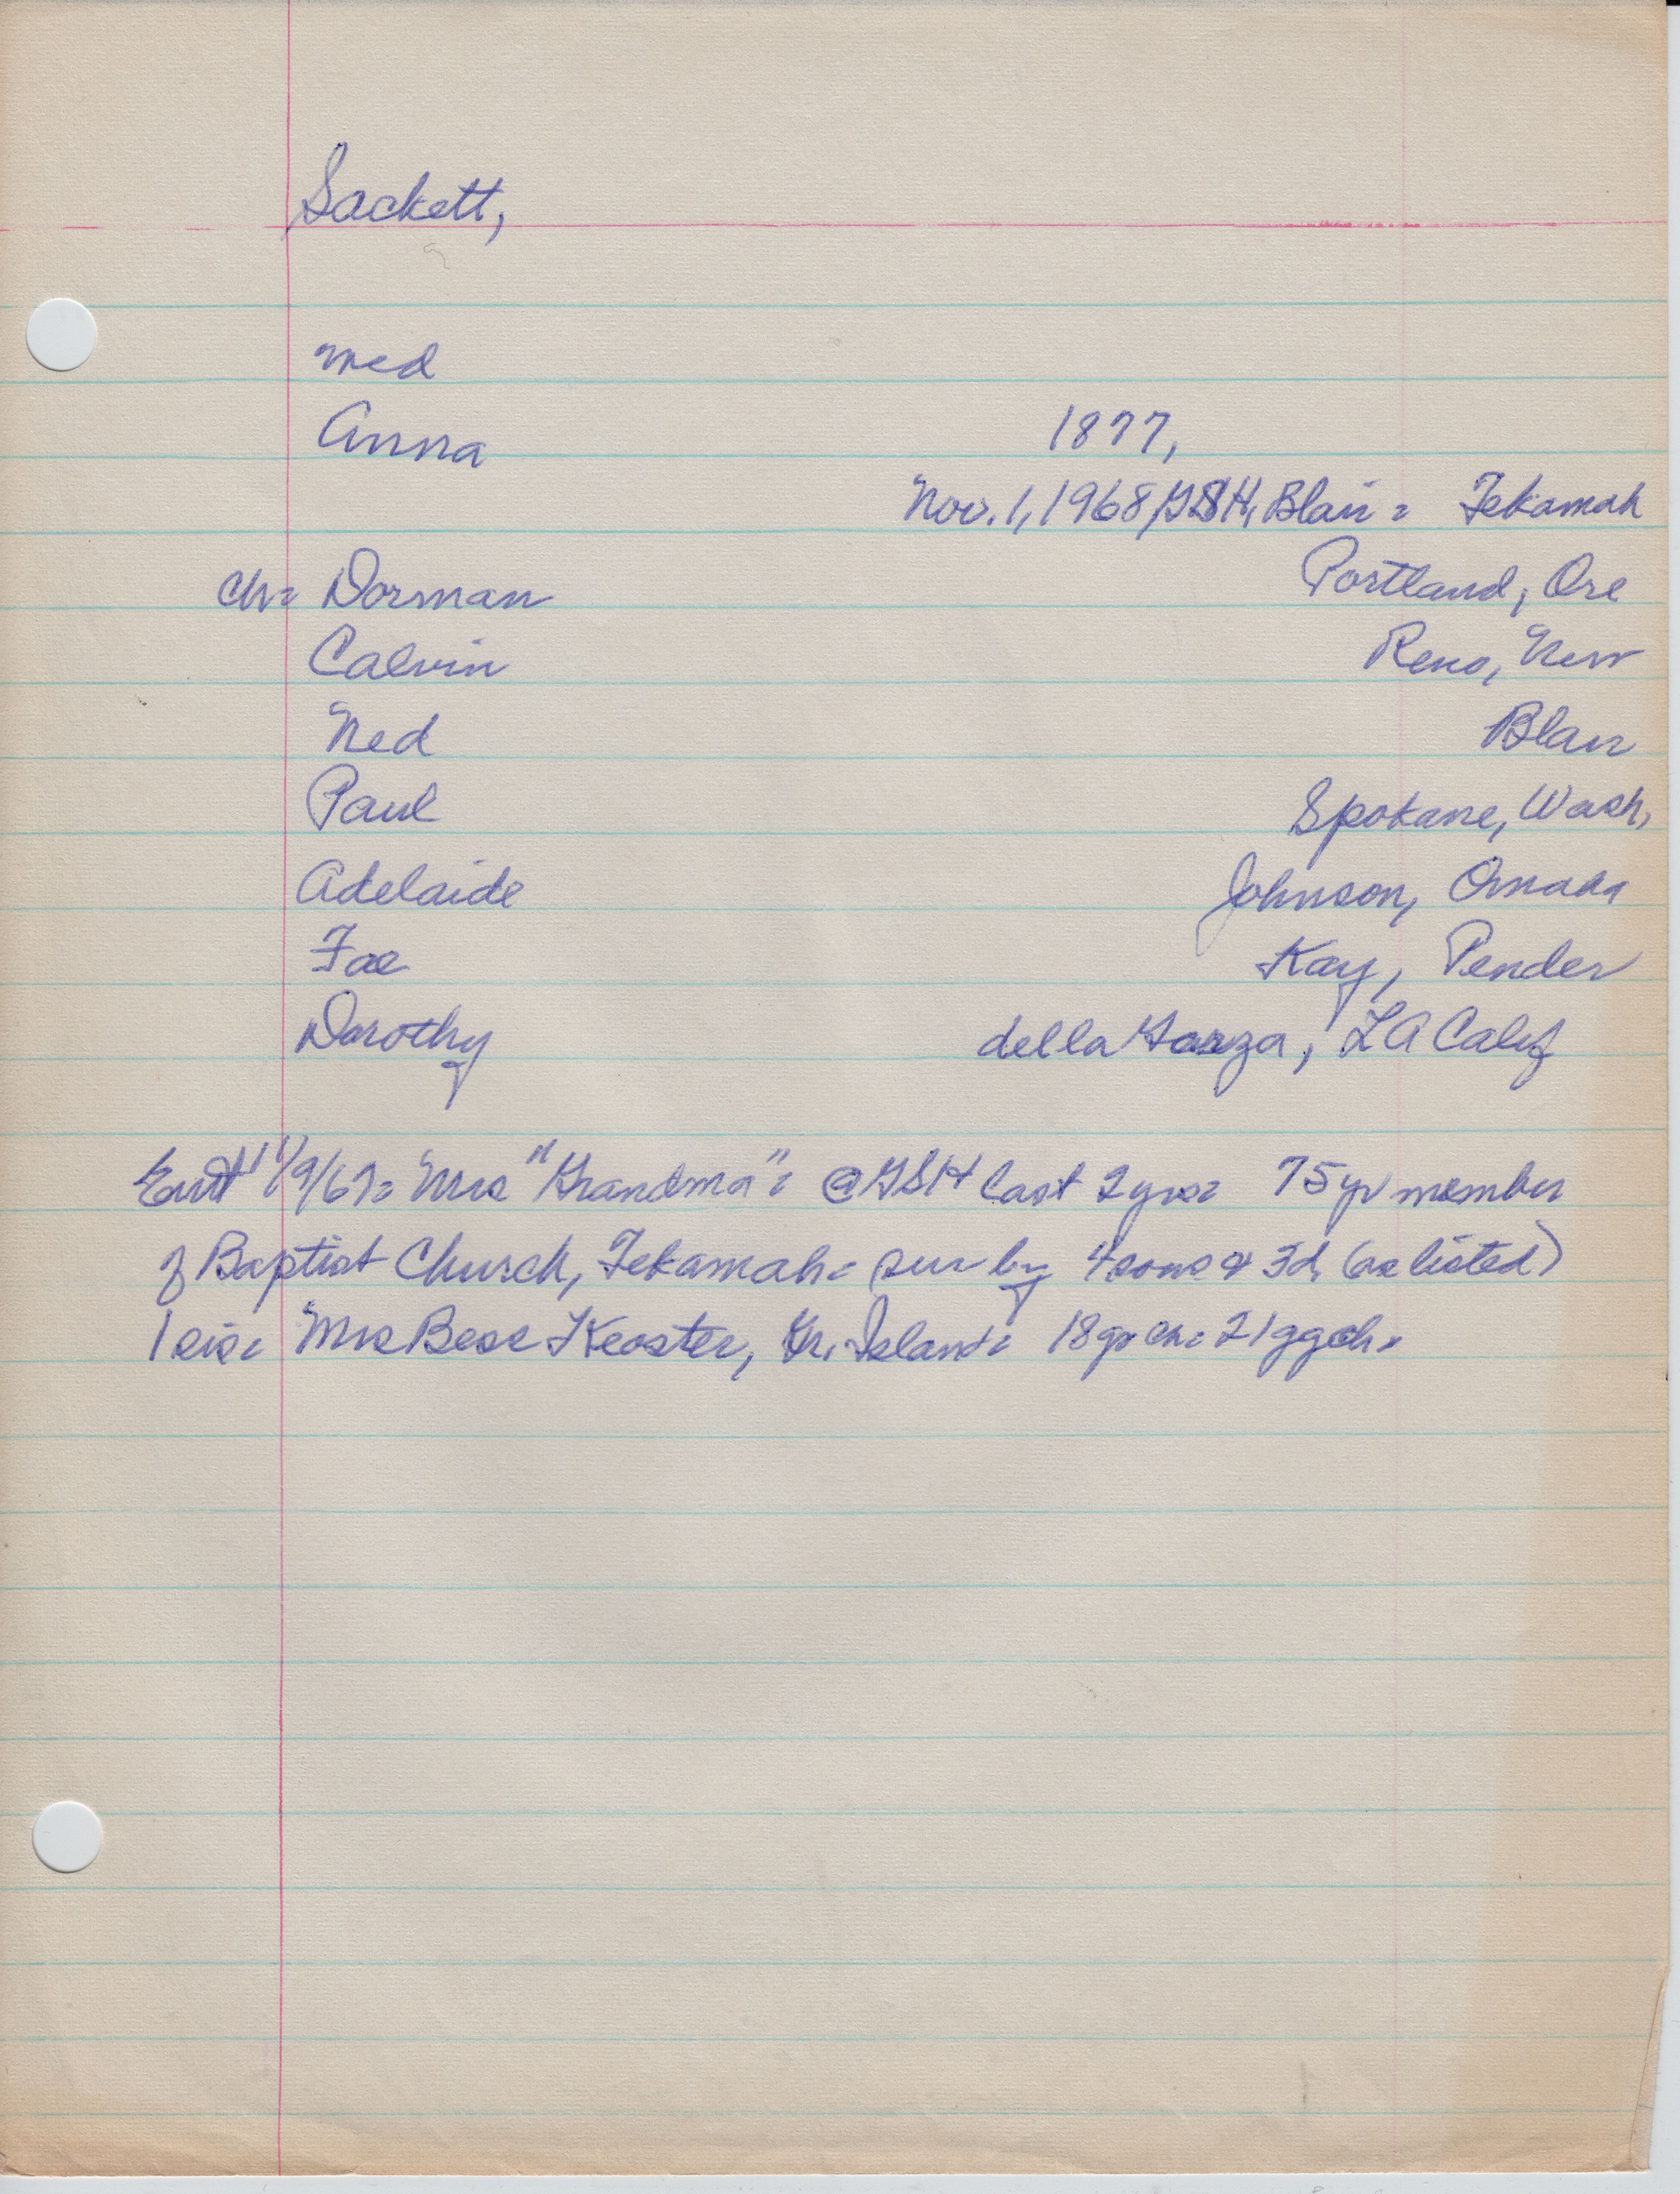 Sackett,
med
Anna 1877,
Nov. 1, 1968, GSH, Blair = Tekamah
ch = Dorman Portland, Ore
Calvin Reno, Nev
Ned Blair
Paul Spokane, Wash,
Adelaide Johnson, Omaha
Fae Kay, Pender
Dorothy della Garza, LA Calif
11/9/67 = Mrs "Grandma" = @ GSH last 2 yrs = 75 yr member
of Baptist Church, Tekamah = sur by 4 sons & 3d, (as listed)
1 sis = Mrs Bess Gr. Island = 18 gr ch = 21 ggch =